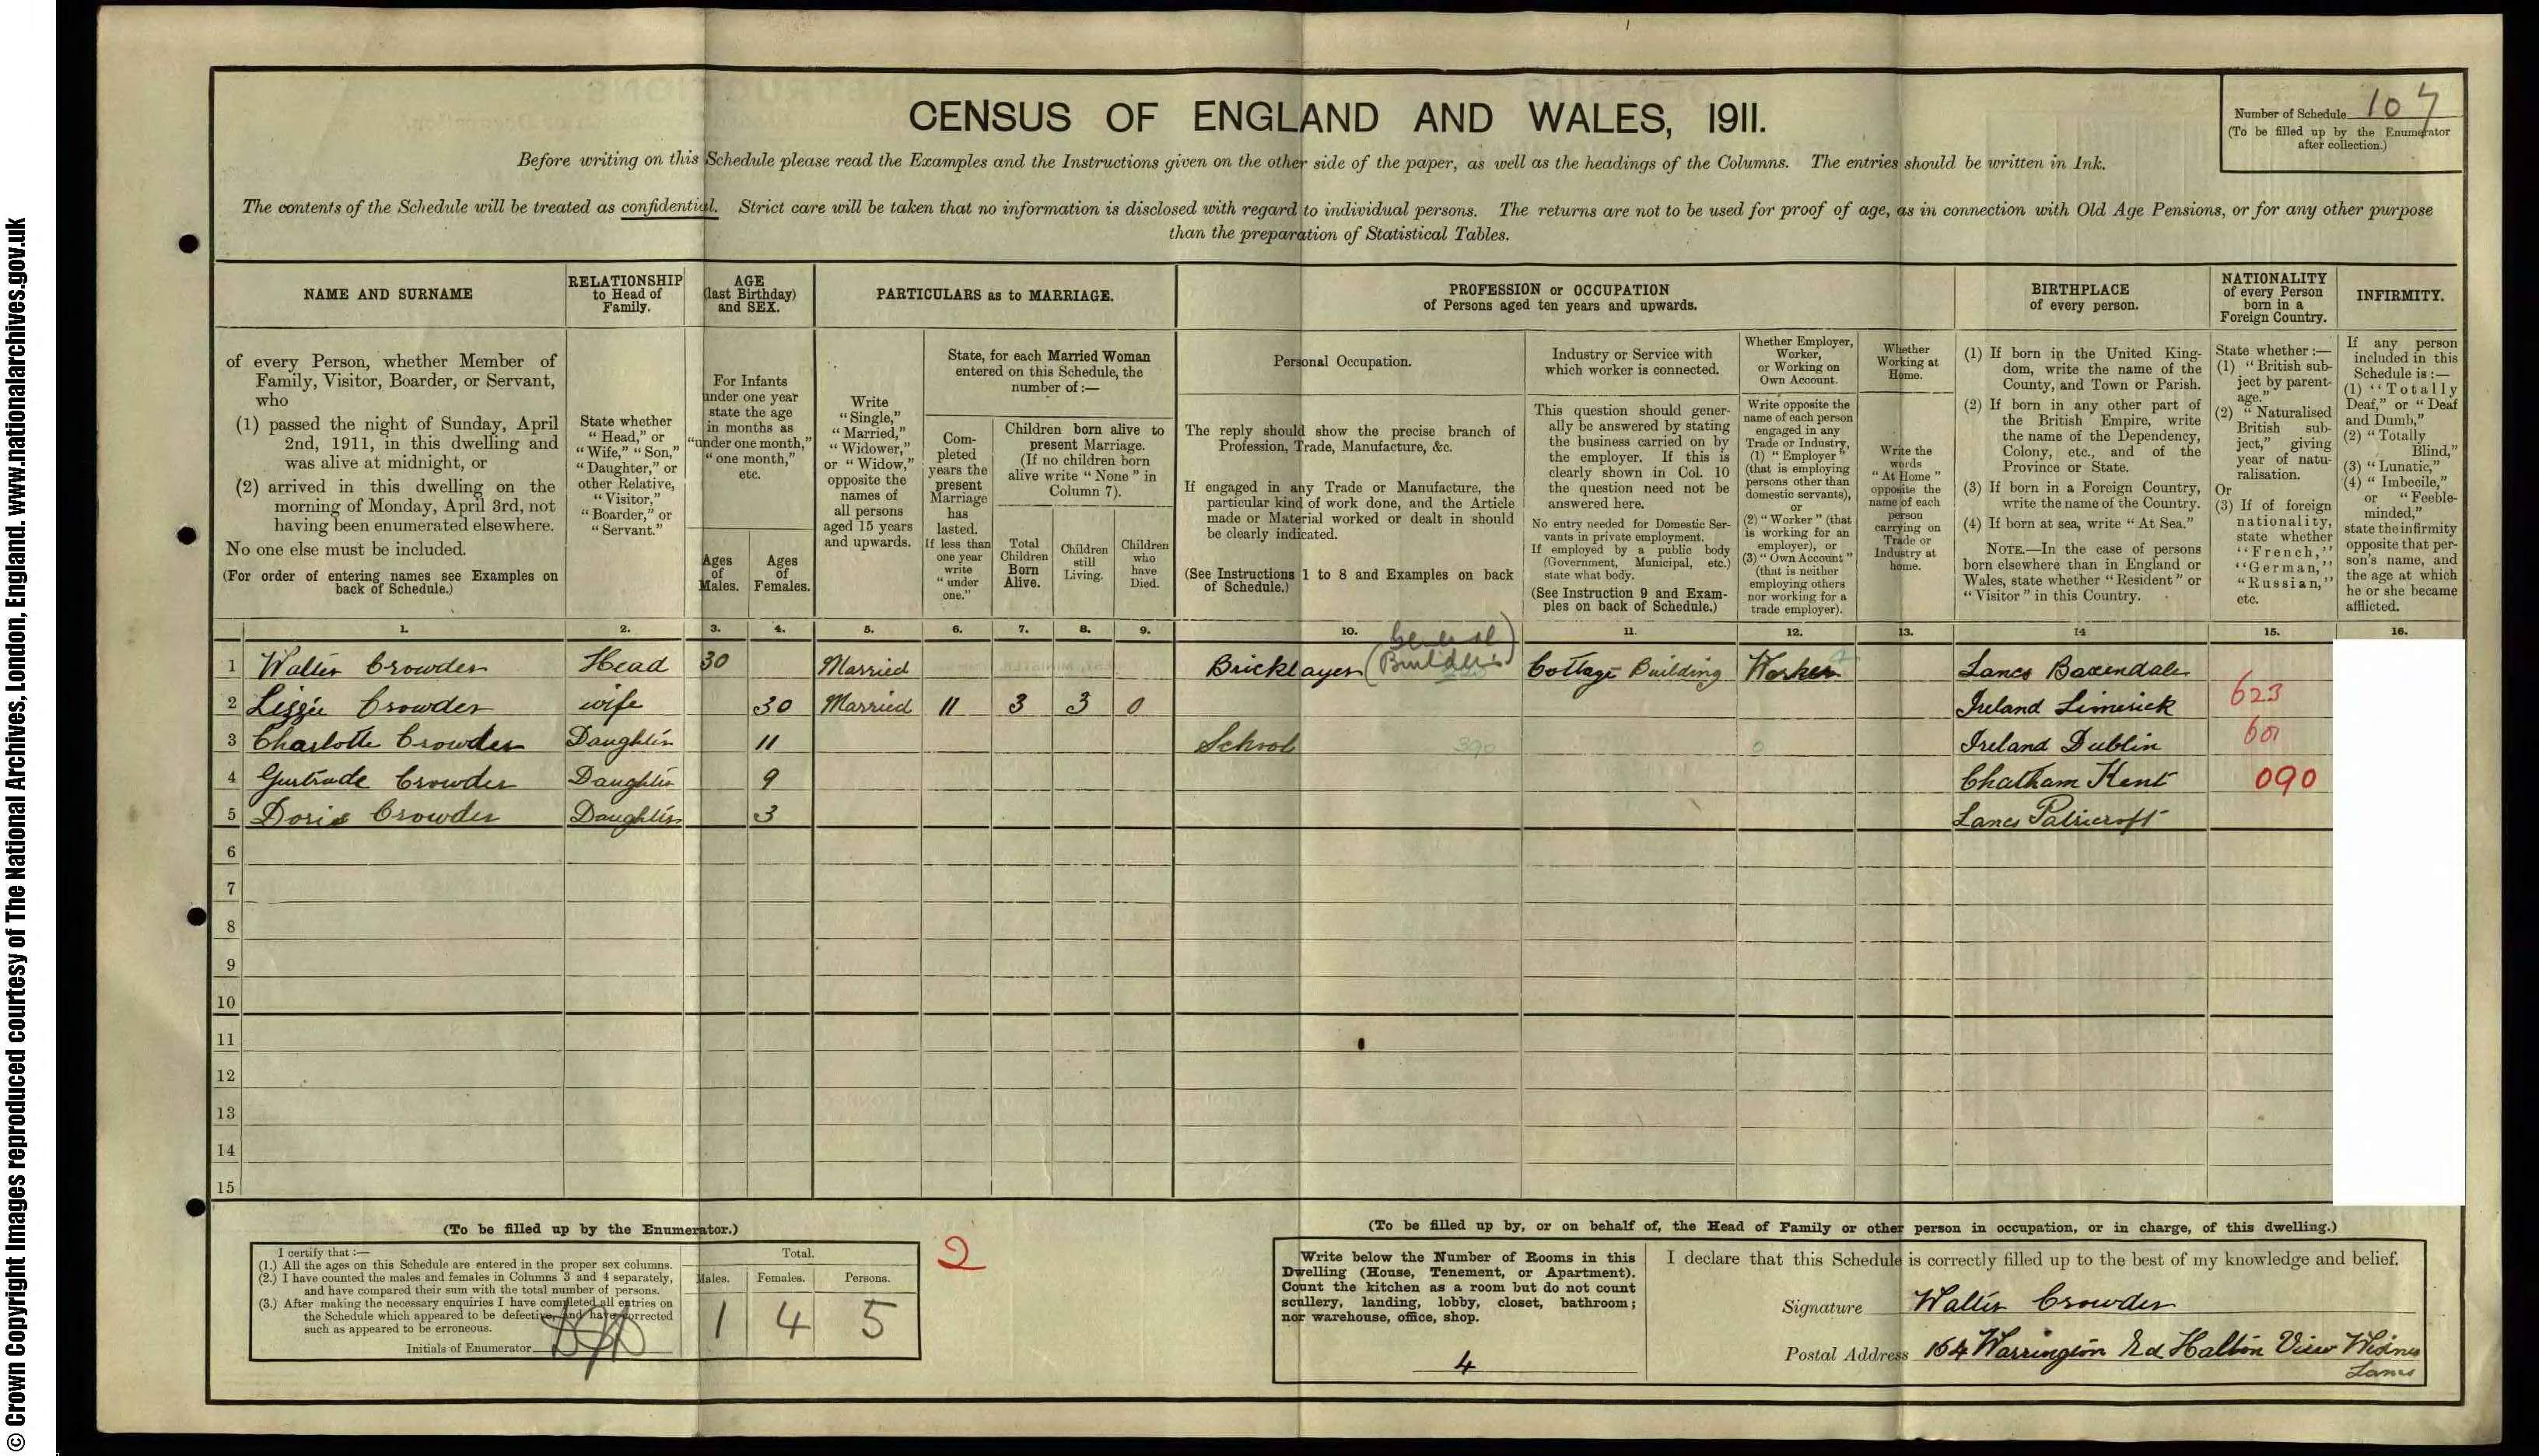 CENSUS OF ENGLAND AND WALES, 1911.
Number of Schedule 107
(To be filled up by the Enumerator
after collection.)
Before writing on this Schedule please read the Examples and the Instructions given on the other side of the paper, as well as the headings of the Columns. The entries should be written in Ink.
The contents of the Schedule will be treated as confidential. Strict care will be taken that no information is disclosed with regard to individual persons. The returns are not to be used for proof of age, as in connection with Old Age Pensions, or for any other purpose
than the preparation of Statistical Tables.
NAME AND SURNAME
RELATIONSHIP
to Head of
Family.
AGE
(last Birthday)
and SEX.
PARTICULARS as to MARRIAGE.
PROFESSION or OCCUPATION
of Persons aged ten years and upwards.
BIRTHPLACE
of every person.
NATIONALITY
of every Person
born in a
Foreign Country.
INFIRMITY.
of every Person, whether Member of
Family, Visitor, Boarder, or Servant,
who
(1) passed the night of Sunday, April
2nd, 1911, in this dwelling and
was alive at midnight, or
(2) arrived in this dwelling on the
morning of Monday, April 3rd, not
having been enumerated elsewhere.
No one else must be included.
(For order of entering names see Examples on
back of Schedule.)
State whether
"Head," or
"Wife," "Son,"
"Daughter," or
other Relative,
"Visitor,"
"Boarder," or
"Servant."
For Infants
under one year
state the age
in months as
"under one month,"
"one month,"
etc.
Ages
of
Males.
Ages
of
Females.
Write
"Single,"
"Married,"
"Widower,"
or "Widow,"
opposite the
names of
all persons
aged 15 years
and upwards.
State, for each Married Woman
entered on this Schedule, the
number of :—
Com-
pleted
years the
present
Marriage
has
lasted.
If less than
one year
write
"under
one."
Children born alive to
present Marriage.
(If no children born
alive write "None" in
Column 7).
Total
Children
Born
Alive.
Children
still
Living.
Children
who
have
Died.
Personal Occupation.
The reply should show the precise branch of
Profession, Trade, Manufacture, &c.
If engaged in any Trade or Manufacture, the
particular kind of work done, and the Article
made or Material worked or dealt in should
be clearly indicated.
(See Instructions 1 to 8 and Examples on back
of Schedule.)
Industry or Service with
which worker is connected.
This question should gener-
ally be answered by stating
the business carried on by
the employer. If this is
clearly shown in Col. 10
the question need not be
answered here.
No entry needed for Domestic Ser-
vants in private employment.
If employed by a public body
(Government, Municipal, etc.)
state what body.
(See Instruction 9 and Exam-
ples on back of Schedule.)
Whether Employer,
Worker,
or Working on
Own Account.
Write opposite the
name of each person
engaged in any
Trade or Industry,
(1) "Employer"
(that is employing
persons other than
domestic servants),
or
(2) "Worker" (that
is working for an
employer), or
(3) "Own Account"
(that is neither
employing others
nor working for a
trade employer).
Whether
Working at
Home.
Write the
words
"At Home"
opposite the
name of each
person
carrying on
Trade or
Industry at
home.
(1) If born in the United King-
dom, write the name of the
County, and Town or Parish.
(2) If born in any other part of
the British Empire, write
the name of the Dependency,
Colony, etc., and of the
Province or State.
(3) If born in a Foreign Country,
write the name of the Country.
(4) If born at sea, write "At Sea."
NOTE.—In the case of persons
born elsewhere than in England or
Wales, state whether "Resident" or
"Visitor" in this Country.
State whether :—
(1) "British sub-
ject by parent-
age."
(2) "Naturalised
British sub-
ject," giving
year of natu-
ralisation.
Or
(3) If of foreign
nationality,
state whether
"French,"
"German,"
"Russian,"
etc.
If any person
included in this
Schedule is :—
(1) "Totally
Deaf," or "Deaf
and Dumb,"
(2) "Totally
Blind,"
(3) "Lunatic,"
(4) "Imbecile,"
or "Feeble-
minded,"
state the infirmity
opposite that per-
son's name, and
the age at which
he or she became
afflicted.
1. 2. 3. 4. 5. 6. 7. 8. 9. 10. 11. 12. 13. 14 15. 16.
1 Walter Crowder Head 30 Married Bricklayer (General Builders) Cottage Building Worker Lancs Baxendale
2 Lizzie Crowder wife 30 Married 11 3 3 0 Ireland Limerick 623
3 Charlotte Crowder Daughter 11 School 390 0 Ireland Dublin 601
4 Gertrude Crowder Daughter 9 Chatham Kent 090
5 Doris Crowder Daughter 3 Lancs Patricroft
6
7
8
9
10
11
12
13
14
15
(To be filled up by the Enumerator.)
I certify that :—
(1.) All the ages on this Schedule are entered in the proper sex columns.
(2.) I have counted the males and females in Columns 3 and 4 separately,
and have compared their sum with the total number of persons.
(3.) After making the necessary enquiries I have completed all entries on
the Schedule which appeared to be defective, and have corrected
such as appeared to be erroneous.
Initials of Enumerator
Total.
Males. Females. Persons.
1 4 5
2
(To be filled up by, or on behalf of, the Head of Family or other person in occupation, or in charge, of this dwelling.)
Write below the Number of Rooms in this
Dwelling (House, Tenement, or Apartment).
Count the kitchen as a room but do not count
scullery, landing, lobby, closet, bathroom;
nor warehouse, office, shop.
4
I declare that this Schedule is correctly filled up to the best of my knowledge and belief.
Signature Walter Crowder
Postal Address 164 Warrington Rd Halton View Widnes
Lancs
© Crown Copyright Images reproduced courtesy of The National Archives, London, England. www.nationalarchives.gov.uk